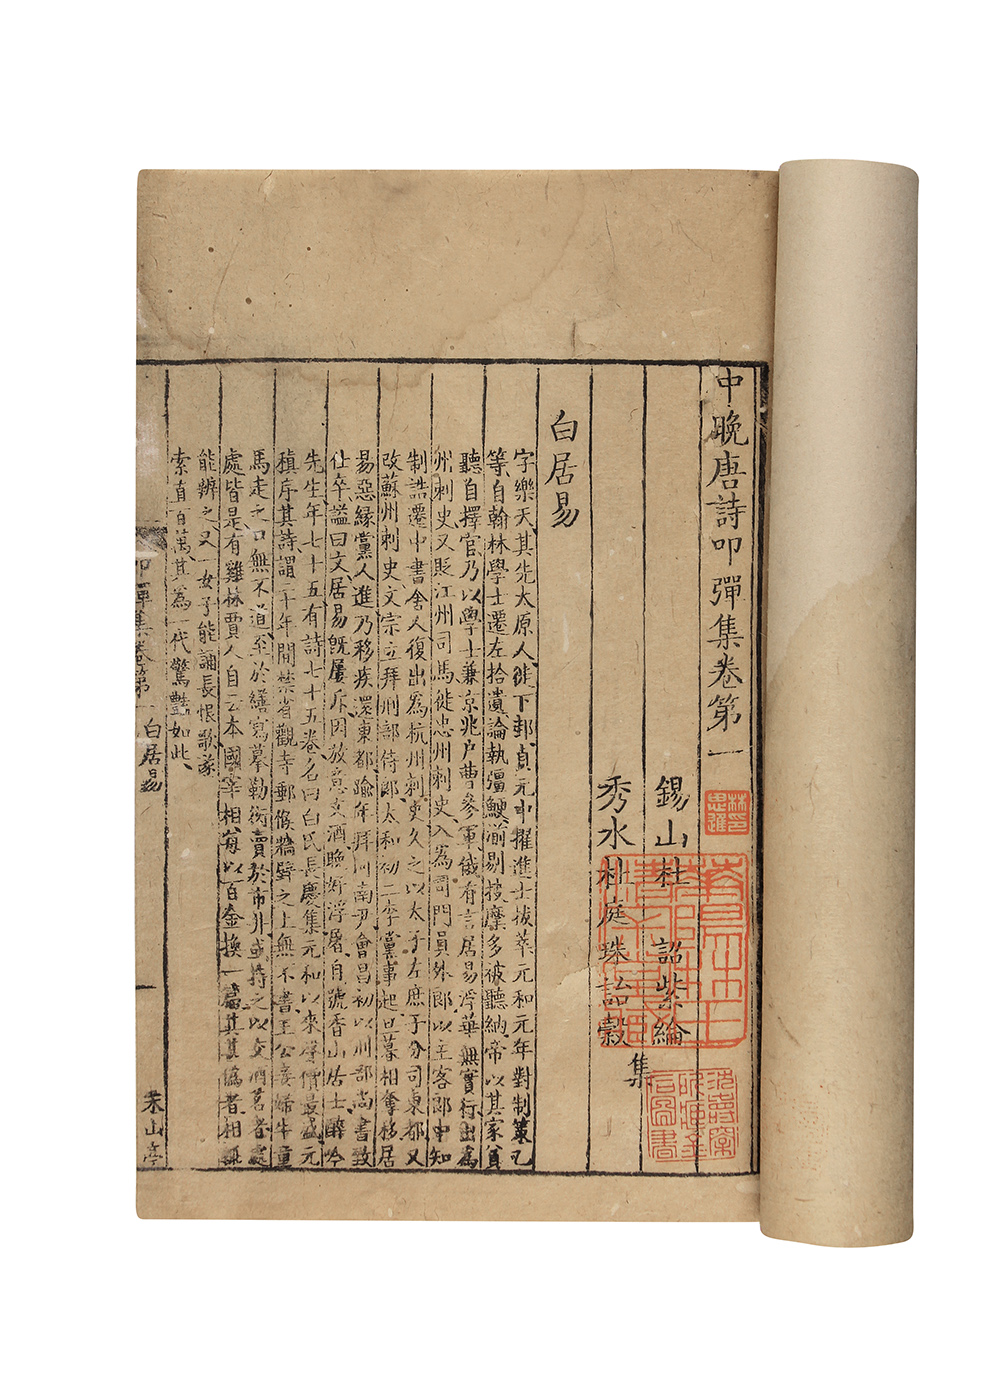 中晚唐詩叩彈集卷第一
錫山杜 詔紫綸
秀水杜庭珠詒穀
集
白居易
字樂天其先太原人徙下邽貞元中擢進士拔萃元和元年對制策乙
等自翰林學士遷左拾遺論執彊鯁湔剔抉摩多被聽納帝以其家貧
聽自擇官乃以學士兼京兆户曹參軍俄有言居易浮華無實行出為
州刺史又貶江州司馬徙忠州刺史入為司門員外郎以主客郎中知
制誥遷中書舍人復出為杭州刺史久之以太子左庶子分司東都又
改蘇州刺史文宗立拜刑部侍郎太和初二李黨事起旦暮相奪移居
易惡緣黨人進乃移疾還東都踰年拜河南尹會昌初以刑部尚書致
仕卒謚曰文居易旣屢斥因放意文酒晚好浮屠自號香山居士醉吟
先生年七十五有詩七十五卷名曰白氏長慶集元和以來聲價最盛元
稹序其詩謂二十年間禁省觀寺郵候牆壁之上無不書王公妾婦牛童
馬走之口無不道至於繕寫摹勒衒賣於市井或持之以交酒茗者處
處皆是有雞林賈人自云本國宰相每以百金換一篇其甚僞者相輒
能辨之又一女子能誦長恨歌遂
索直百萬其為一代驚豔如此
叩彈集卷第一 白居易
一
采山亭
林印
思進